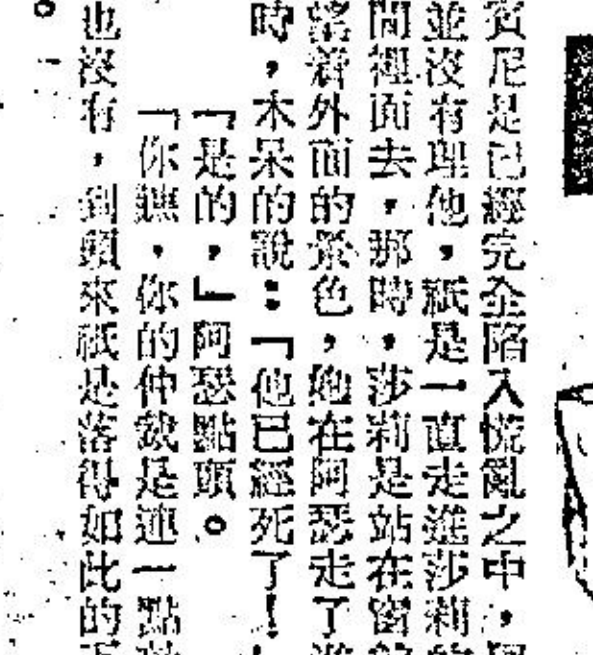 賓尼是已經完全陷入慌亂之中,
並沒有理他,祇是一直走進莎莉的
間裡面去,那時,莎莉是站在窗前
望着外面的景色,她在阿瑟走了進
時,木呆的說:「他已經死了!」
「是的,」阿瑟點頭。
「你瞧,你的仲裁是連一點
也沒有,到頭來祇是落得如此的下
。